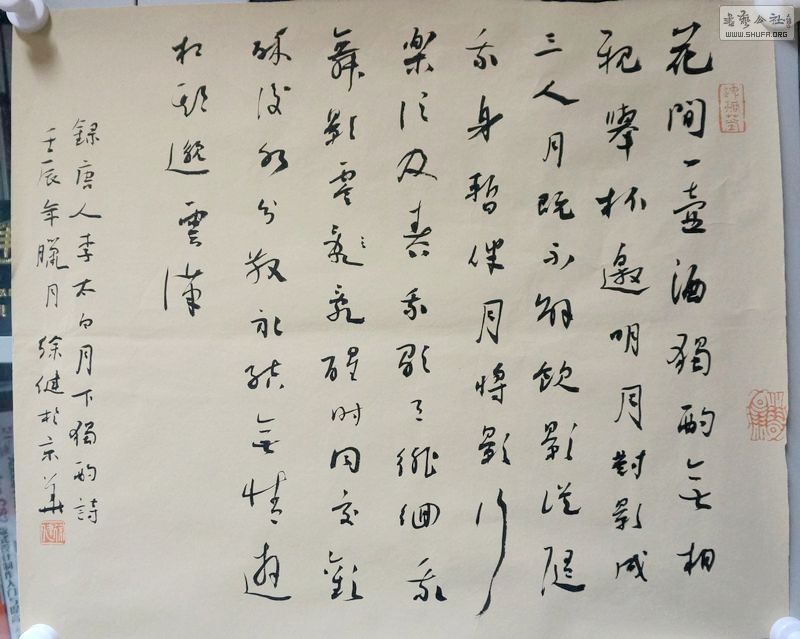 花間一壺酒獨酌無相
親舉杯邀明月對影成
三人月既不解飲影徒隨
我身暫伴月將影行
樂須及春我歌月徘徊我
舞影零亂亂醒時同交歡
醉後各分散永結無情遊
相期邈雲漢
録唐人李太白月下獨酌詩
壬辰年臘月 徐健於京華
書藝公社
WWW.SHUFA.ORG